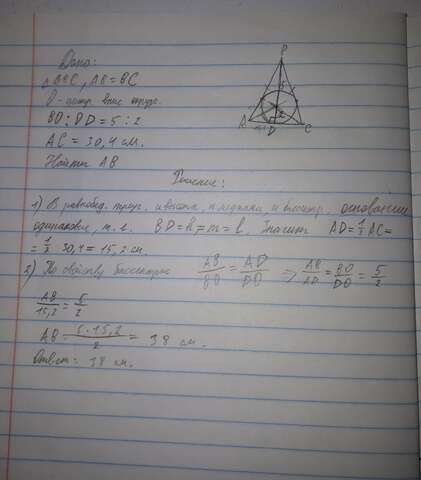 Дано:
△ABC, AB=BC
O - центр впис. окруж.
BO : OD = 5 : 2
AC = 30,4 см.
Найти AB
B
5
2
A
D
C
Решение:
1) В равнобед. треуг. и высота, и медиана и биссектр. основании
одинаковы, т. е. BD = h = m = l. Значит AD = 1/2 AC =
= 1/2 · 30,4 = 15,2 см.
2) По свойству биссектрис AB/BO = AD/DO ⇒ AB/AD = BO/DO = 5/2
AB/15,2 = 5/2
AB = 5·15,2/2 = 38 см.
Ответ: 38 см.